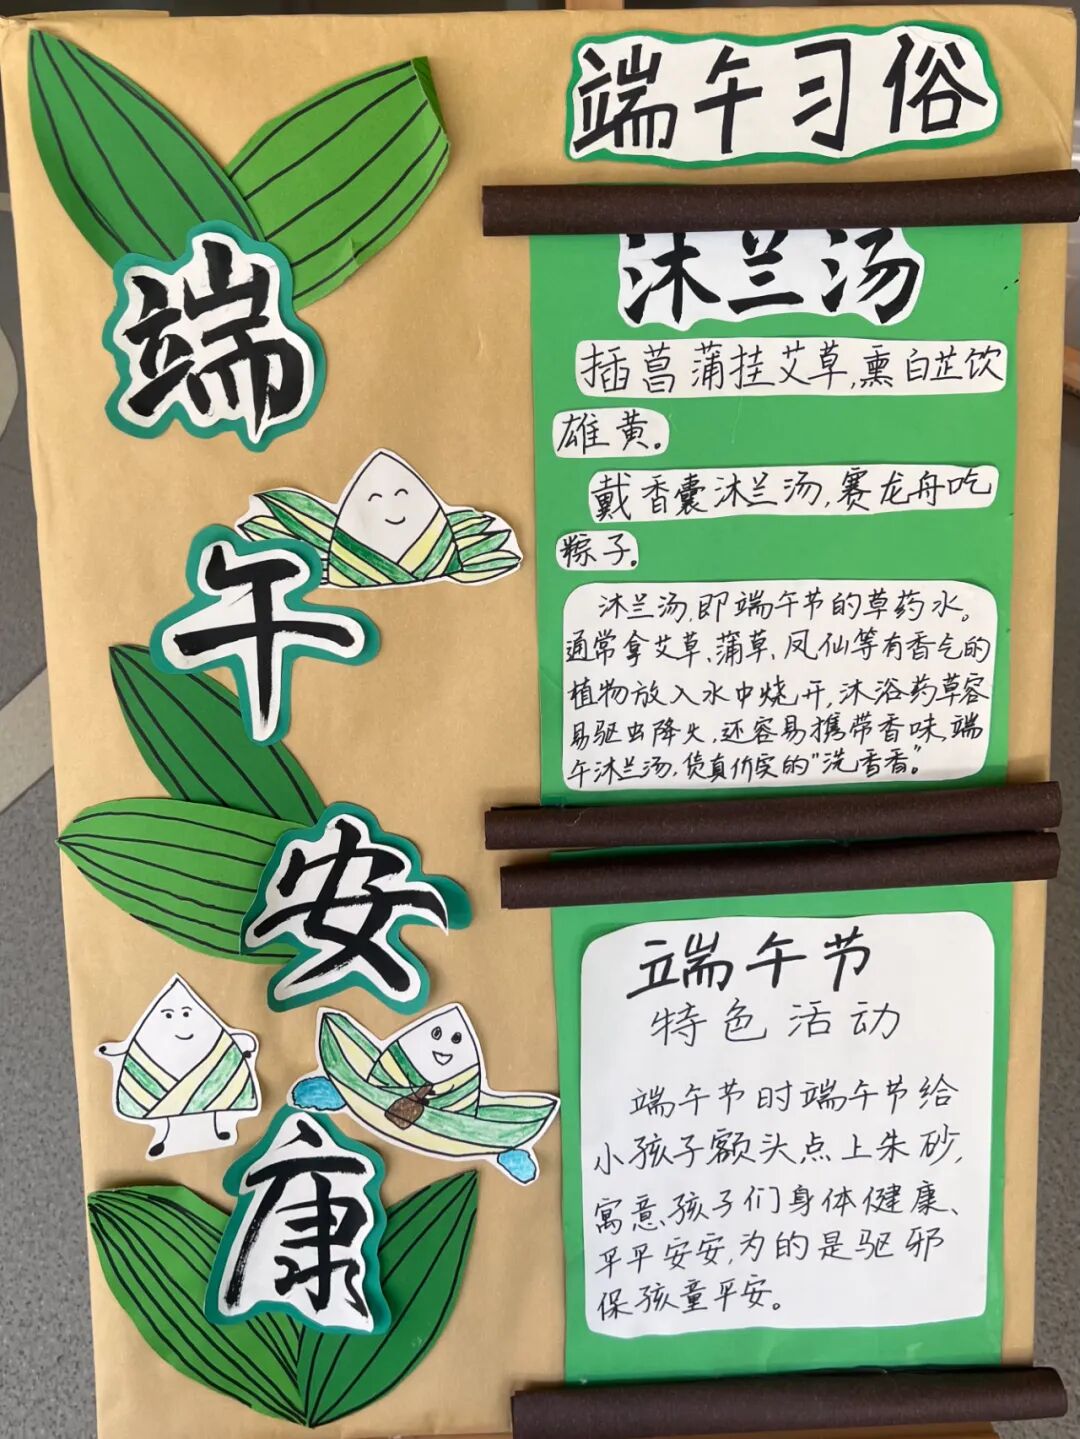 端
午
安
康
端午习俗
沐兰汤
插菖蒲挂艾草,熏白芷饮
雄黄。
戴香囊沐兰汤,赛龙舟吃
粽子。
沐兰汤,即端午节的草药水。
通常拿艾草、蒲草、凤仙等有香气的
植物放入水中烧开,沐浴药草容
易驱虫降火,还容易携带香味,端
午沐兰汤,货真价实的“洗香香”。
端午节
特色活动
端午节时端午节给
小孩子额头点上朱砂,
寓意孩子们身体健康、
平平安安,为的是驱邪
保孩童平安。